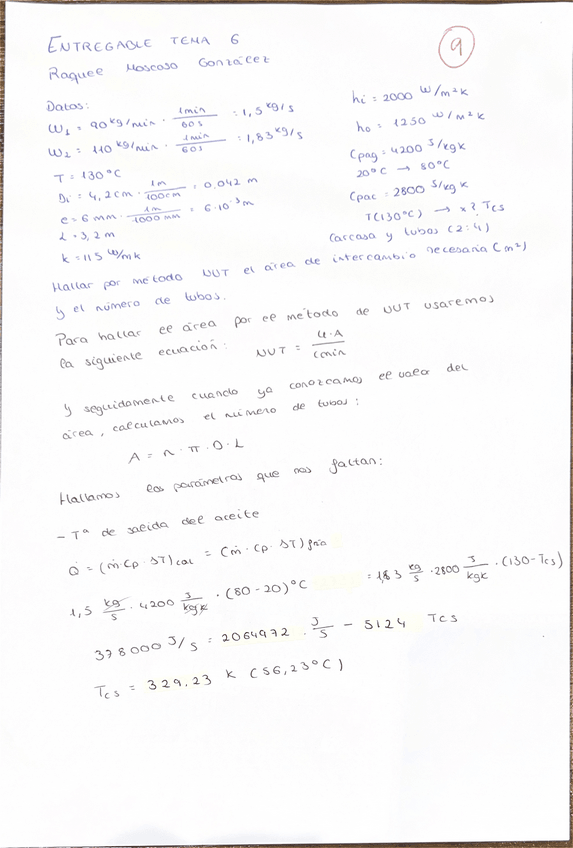 ENTREGABLE TEMA 6
9
Raquel Moscoso González
Datos:
W₁ = 90 kg/min · 1min/60s = 1,5 kg/s
W₂ = 110 kg/min · 1min/60s = 1,83 kg/s
T = 130°C
Di = 4,2cm · 1m/100cm = 0.042 m
e = 6 mm · 1m/1000 mm = 6·10⁻³ m
L = 3,2 m
k = 115 W/mk
hi = 2000 W/m²k
ho = 1250 W/m²k
Cpag = 4200 J/kgk
20°C → 80°C
Cpac = 2800 J/kgk
T(130°C) → x? Tcs
Carcasa y tubos (2:4)
Hallar por método NUT el área de intercambio necesaria (m²)
y el número de tubos.
Para hallar el área por el método de NUT usaremos
la siguiente ecuación: NUT = U·A/Cmin
Y seguidamente cuando ya conozcamos el valor del
área, calculamos el número de tubos:
A = n · π · D · L
Hallamos los parámetros que nos faltan:
- Tª de salida del aceite
Q̇ = (ṁ·Cp·ΔT)cal = (ṁ·Cp·ΔT)fría
1,5 kg/s · 4200 J/kgk · (80-20)°C = 1,83 kg/s · 2800 J/kgk · (130-Tcs)
378000 J/s = 2064972 · J/s - 5124 Tcs
Tcs = 329.23 K (56,23°C)